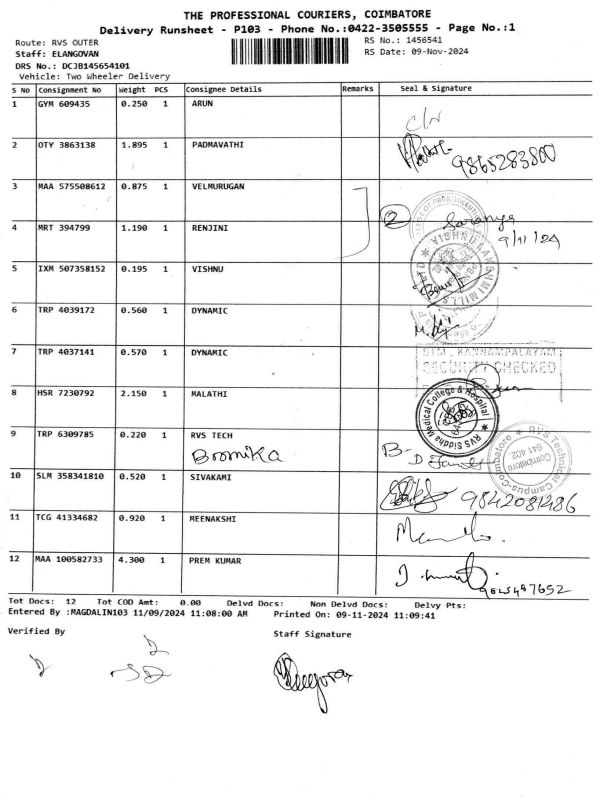 THE PROFESSIONAL COURIERS, COIMBATORE
Delivery Runsheet - P103 - Phone No.:0422-3505555 - Page No.:1
Route: RVS OUTER
RS No.: 1456541
Staff: ELANGOVAN
RS Date: 09-Nov-2024
DRS No.: DCJB145654101
Vehicle: Two Wheeler Delivery
S No Consignment No Weight PCS Consignee Details Remarks Seal & Signature
1 GYM 609435 0.250 1 ARUN
2 OTY 3863138 1.895 1 PADMAVATHI
9865283800
3 MAA 575508612 0.875 1 VELMURUGAN
2 Saranya
4 MRT 394799 1.190 1 RENJINI
9/11/24
5 IXM 507358152 0.195 1 VISHNU
6 TRP 4039172 0.560 1 DYNAMIC
7 TRP 4037141 0.570 1 DYNAMIC
SECURITY CHECKED
8 HSR 7230792 2.150 1 MALATHI
RVS Siddha Medical College & Hospital
9 TRP 6309785 0.220 1 RVS TECH
Boomika
RVS Technical Campus-Coimbatore
Coimbatore
641 402
10 SLM 358341810 0.520 1 SIVAKAMI
9842081486
11 TCG 41334682 0.920 1 MEENAKSHI
12 MAA 100582733 4.300 1 PREM KUMAR
Tot Docs: 12 Tot COD Amt: 0.00 Delvd Docs: Non Delvd Docs: Delvy Pts:
Entered By :MAGDALIN103 11/09/2024 11:08:00 AM Printed On: 09-11-2024 11:09:41
Verified By Staff Signature